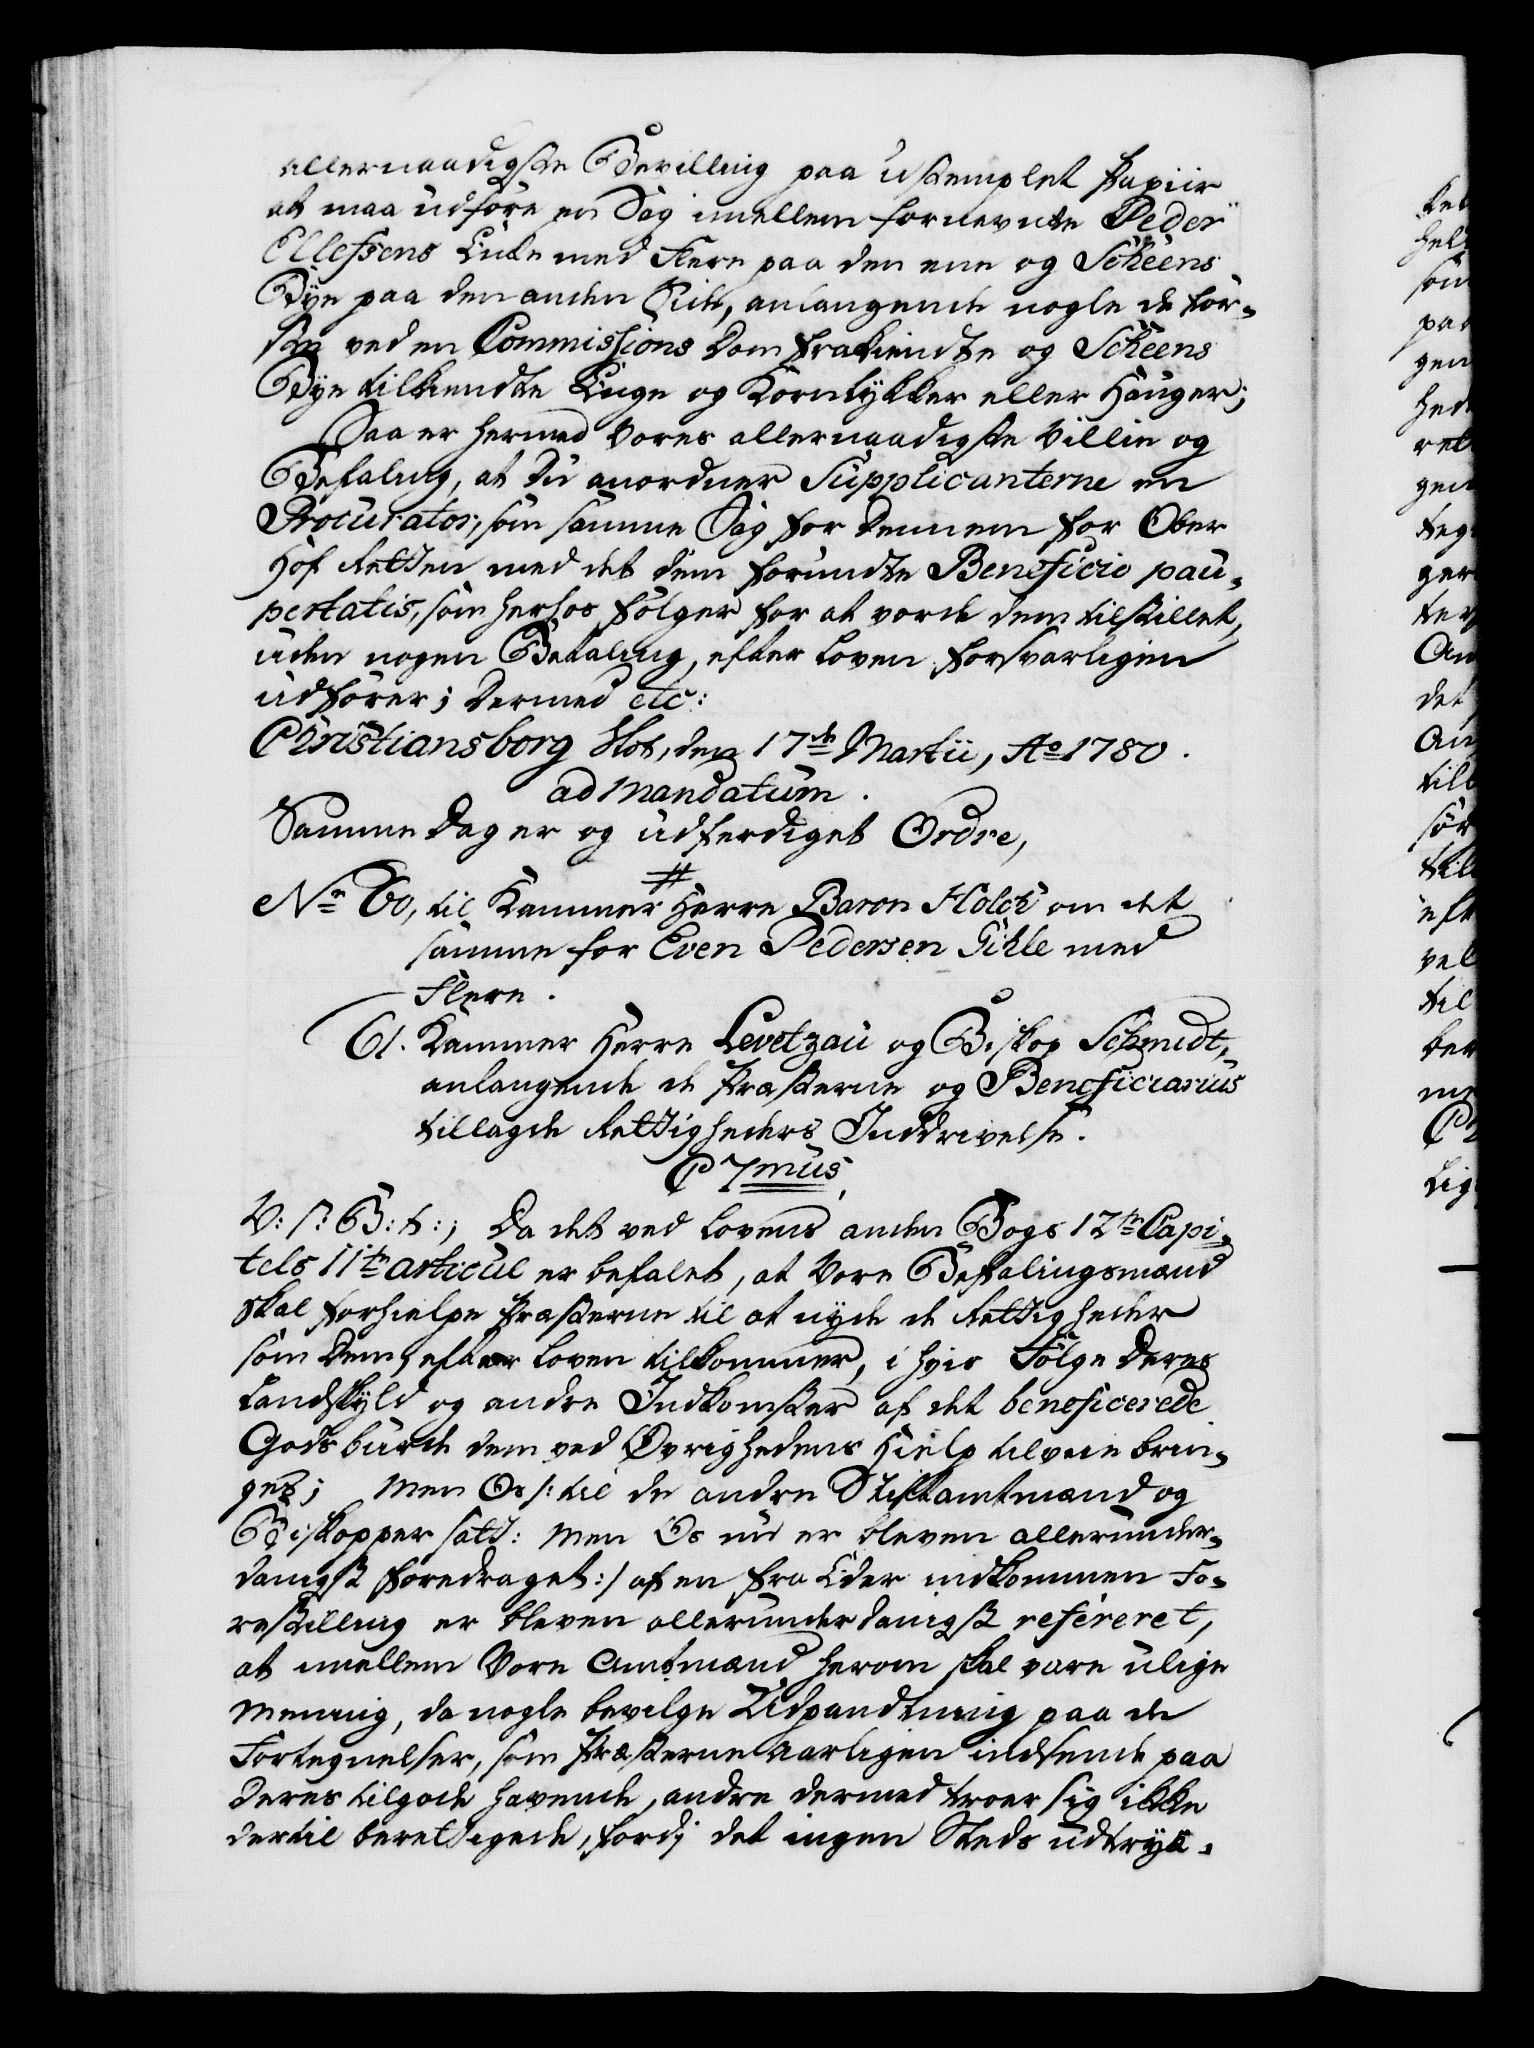 allernaadigste Bevilling paa ustemplet Papiir
at maa udføre en Sag imellem fornevnte Peder
Ellefsens Enke med Flere paa den ene og Scheens
Bÿe paa den anden Side, anlangende nogle de før-
ste ved en Commissions Dom frakiendte og Scheens
Bÿe tilkiendte Enge og Kornlÿkker eller Hauger;
Saa er hermed Vores allernaadigste Villie og
Befaling, at Du anordner Supplicanterne en
Procurator, som samme Sag for Dennem for Ober
Hof Retten med det dem forundte Beneficio pau-
pertatis, som herhos følger for at vorde dem tilstillet,
uden nogen Betaling, efter Loven forsvarligen
udfører; Dermed etc:
Christiansborg Slot, den 17de Martii, Ao 1780.
ad mandatum.
Samme Dag er og udferdiget Ordre,
No 60, til Kammer Herre Baron Holck om det
samme for Even Pedersen Gihle med
Flere.
61. Kammer Herre Levetzau og Biskop Schmidt,
anlangende de Præsterne og Beneficiarius
tillagde Rettigheders Inddrivelse.
C 7mus
V: s: B: t:; Da det ved Lovens anden Bogs 12te Capi-
tels 11te articul er befalet, at Vore Befalingsmænd
skal forhielpe Præsterne til at nyde de Rettigheder
som Dem efter Loven tilkommer, i hvis Følge Deres
Landskyld og andre Indkomster af det beneficerede
Gods burde dem ved Øvrighedens Hielp tilveie brin-
ges; Men Os /: til de andre Stiftamtmænd og
Biskopper satt: Men Os nu er bleven allerunder-
danigst foredraget :/ af en fra Eder indkommen Fo-
restilling er bleven allerunderdanigst refereret,
at imellem Vore Amtmænd herom skal være ulige
Mening, da nogle bevilge Udpandtning paa de
Fortegnelser, som Præsterne aarligen indsende paa
Deres tilgode havende, andre dermed troer sig ikke
dertil berettigede, fordj det ingen Steds udtryk-